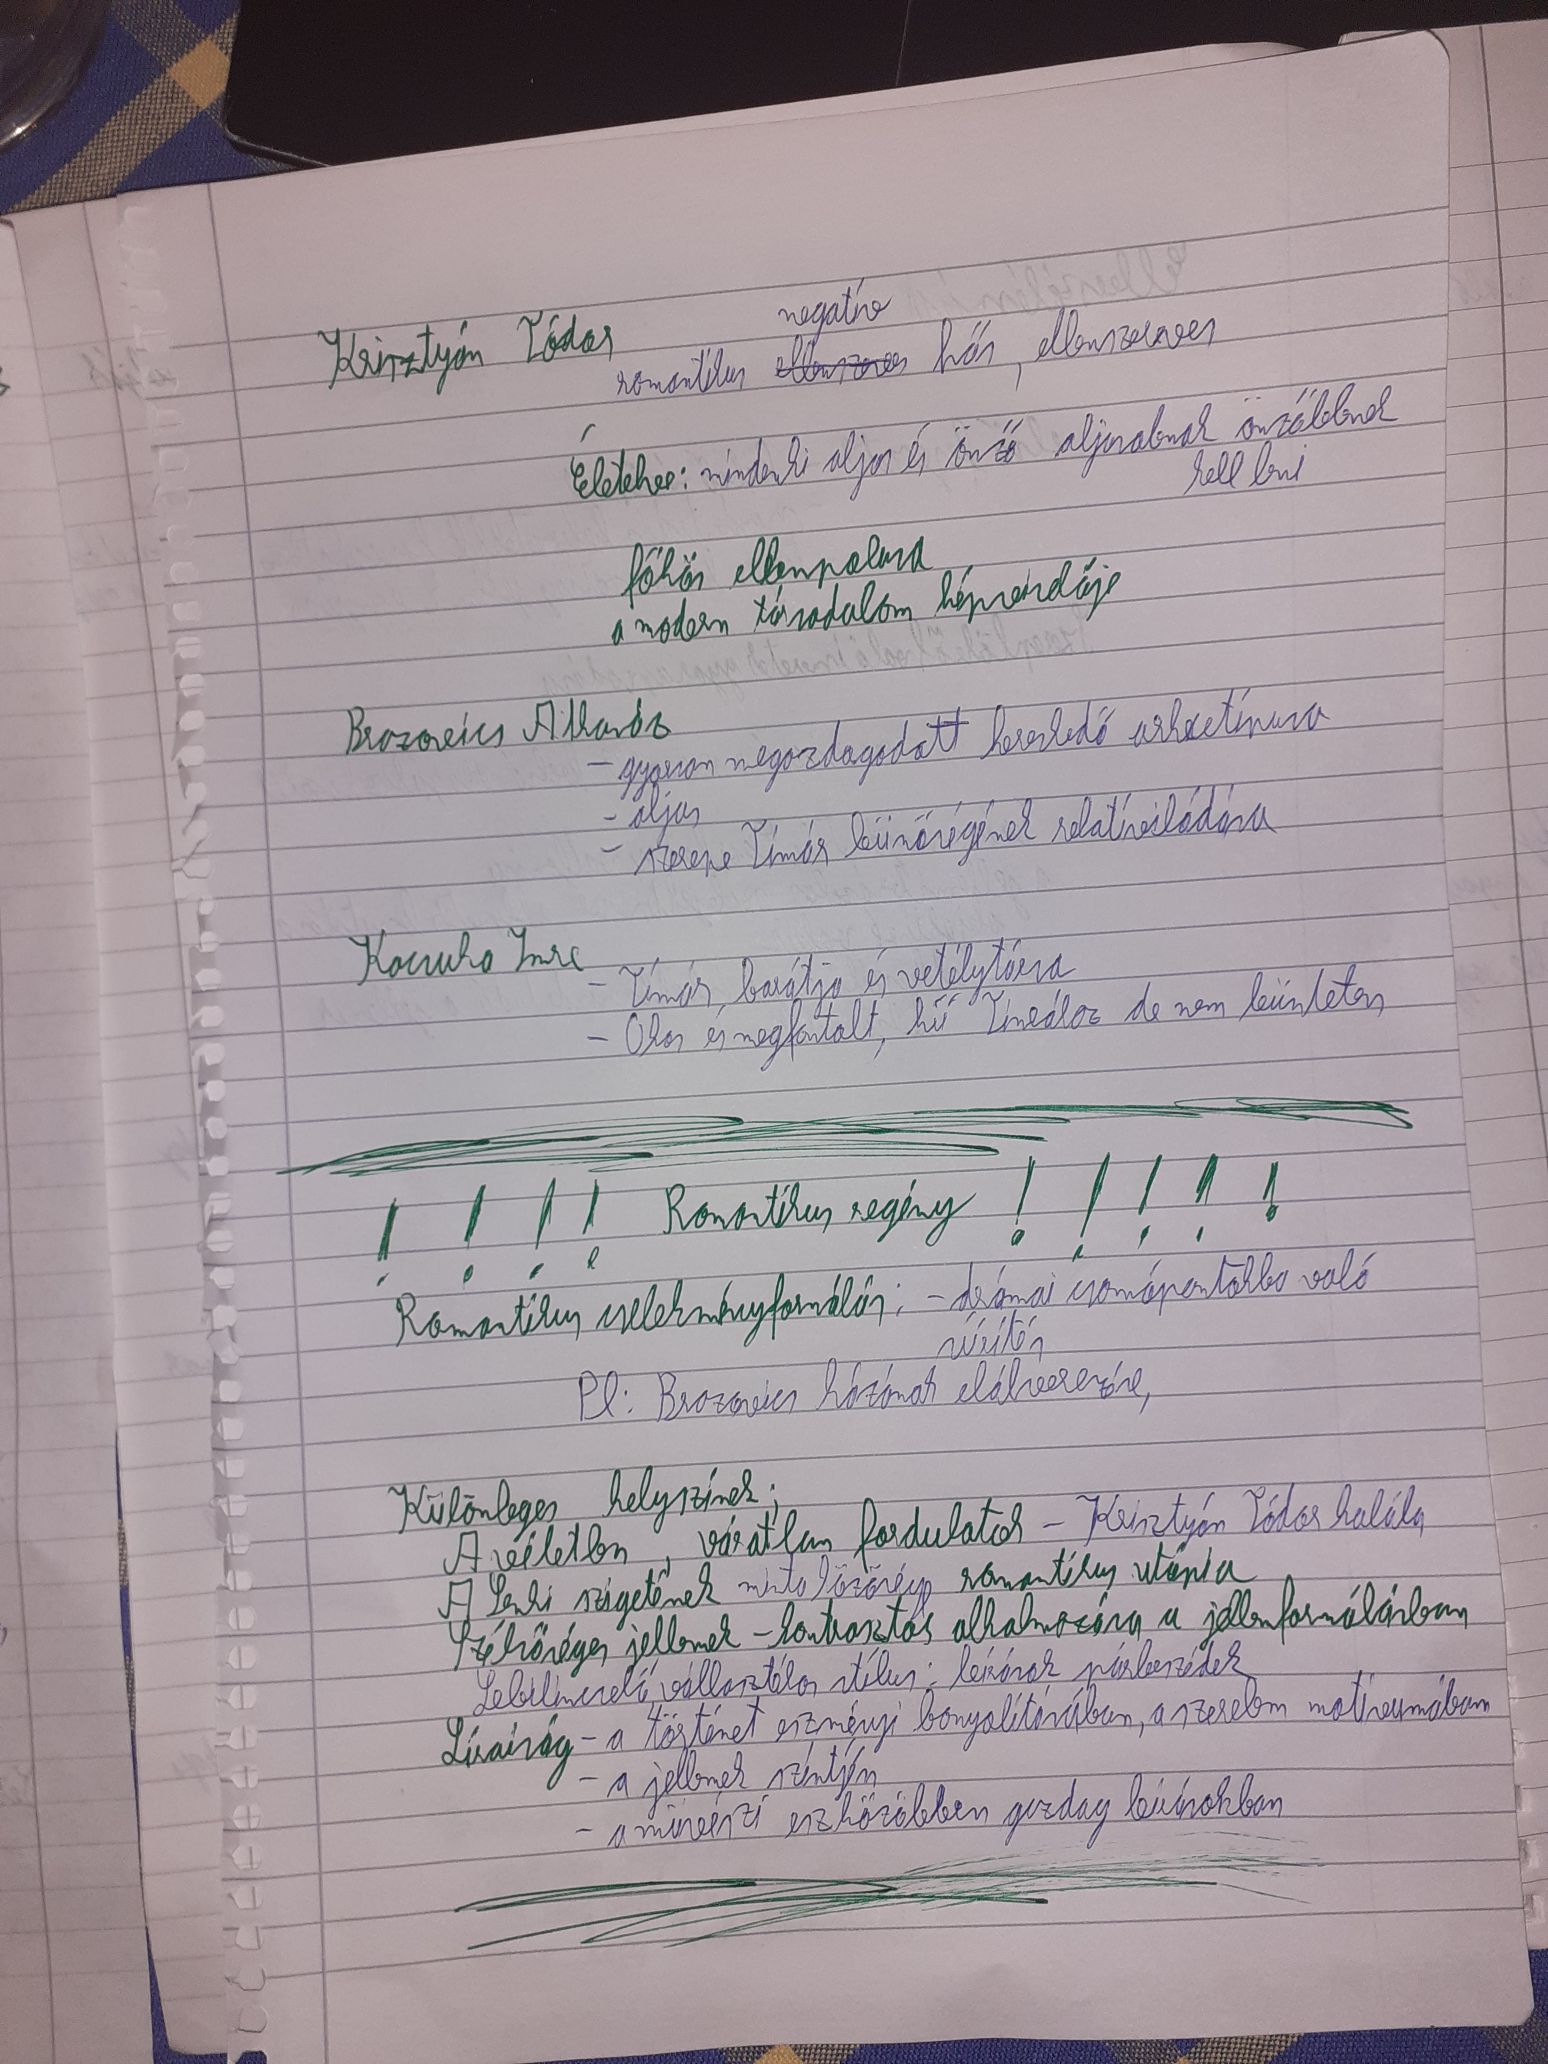 Krisztyán Tódor
negatív
romantikus ellenszenves hős, ellenszenves
Életelve: mindenki aljas és önző aljasabnak önzőbbnek
kell leni
főhős ellenpolusa
a modern társadalom képviselője
Brazovics Athanáz
- gyorsan megozdagodott kereskedő arhcetípusa
- aljas
- szerepe Tímár bűnőségének relatívizálódása
Kacsuka Imre
- Tímár barátja és vetélytársa
- Okos és megfontalt, hű Tímeához de nem bűntelen
! ! ! ! Romantikus regény ! ! ! ! !
Romantikus cselekményformálás: - drámai csomópontokba való
sűrítés
Pl: Brazovics házának elálverezése,
Különleges helyszínek:
A véletlen, váratlan fordulatok - Krisztyán Tódor halála
A Senki szigetének mint közösség romantikus utópia
Szélsőséges jellemek - kontrasztás alkalmazása a jellemformálásban
Lebilincselő, választékos stílus: leírások párbeszédek
Líraiság - a történet eszményi bonyolításában, a szerelem motívumában
- a jellemek szintjén
- a művészi eszközökben gazdag leírásokban